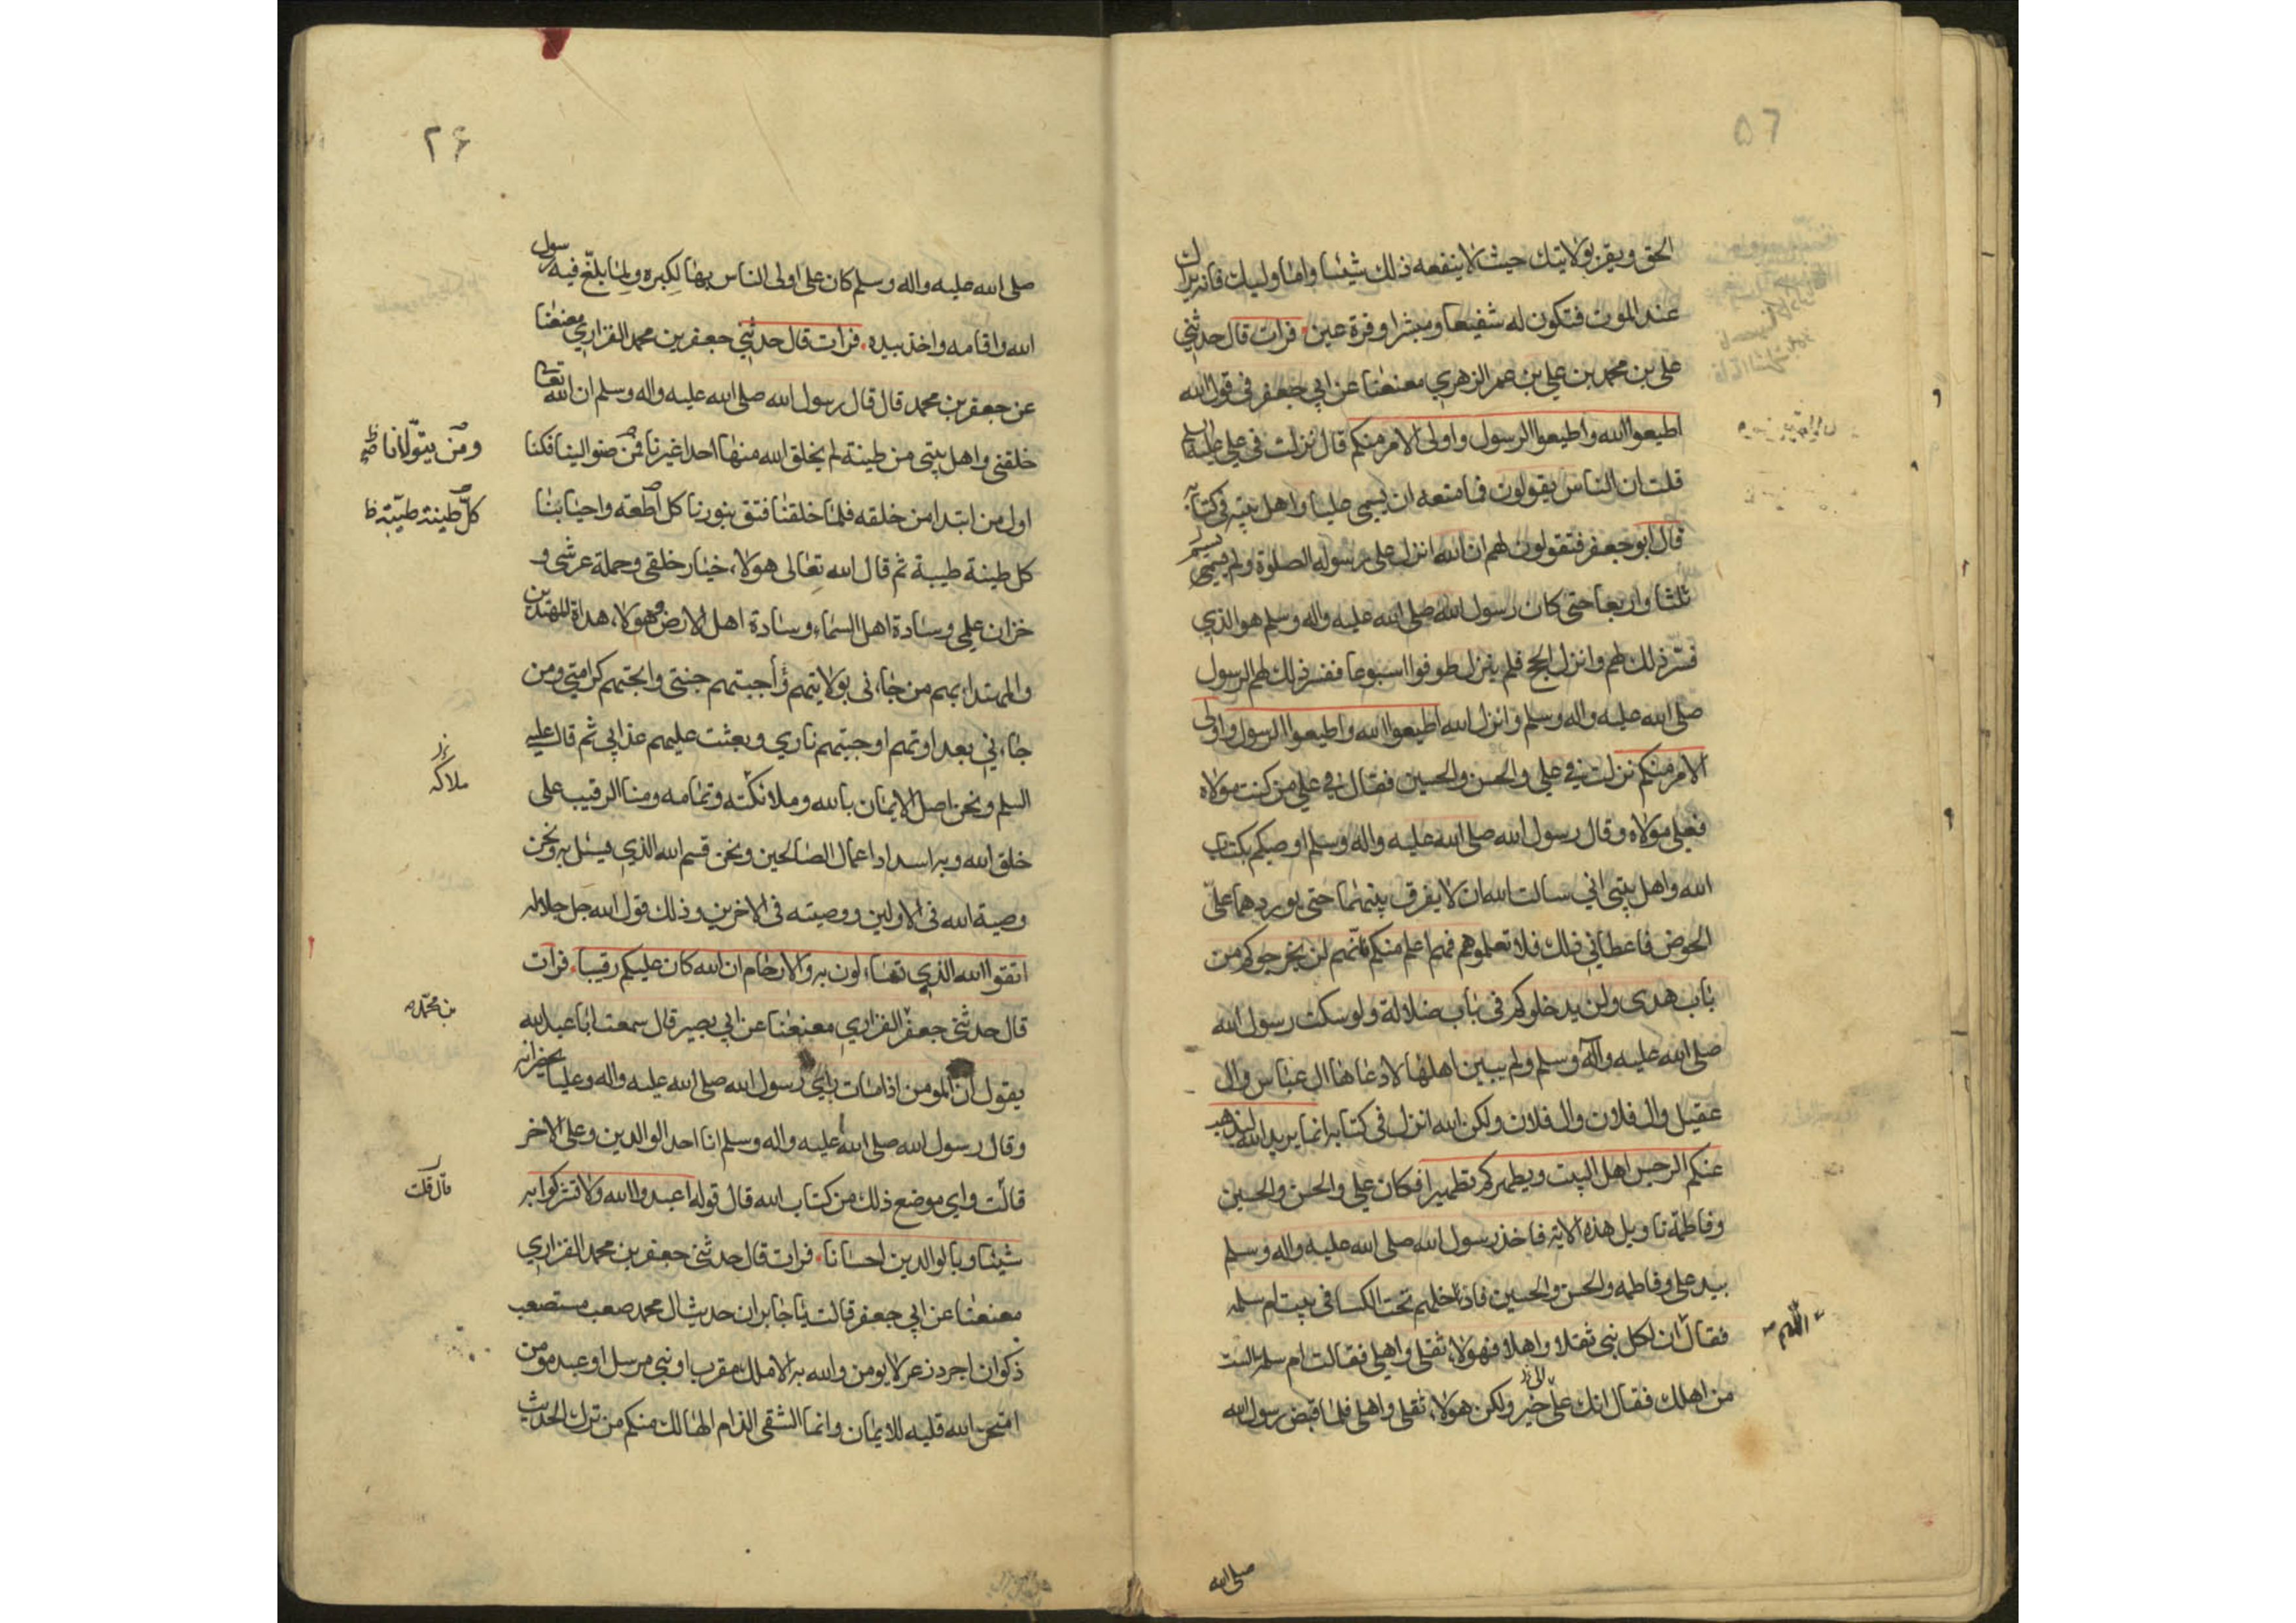 الحق ويقر بولايتك حيث لا ينفعه ذلك شيئا واما وليك فانه يراك
عند الموت فتكون له شفيعا ومبشرا وقرة عين فرات قال حدثني
علي بن محمد بن علي بن عمر الزهري معنعنا عن ابي جعفر في قول الله
اطيعوا الله واطيعوا الرسول واولى الامر منكم قال نزلت في علي عليه السلم
قلت ان الناس يقولون فما منعه ان يسمى عليا واهل بيته في كتابه
قال ابو جعفر فتقولون لهم ان الله انزل على رسوله الصلوة ولم يسم
ثلثا واربعا حتى كان رسول الله صلى الله عليه واله وسلم هو الذي
فسر ذلك لهم وانزل الحج فلم ينزل طوفوا اسبوعا ففسر ذلك لهم الرسول
صلى الله عليه واله وسلم وانزل الله اطيعوا الله واطيعوا الرسول واولى
الامر منكم نزلت في علي والحسن والحسين فقال في علي من كنت مولاه
فعلي مولاه وقال رسول الله صلى الله عليه واله وسلم اوصيكم بكتاب
الله واهل بيتي اني سالت الله ان لا يفرق بينهما حتى يوردهما علي
الحوض فاعطاني ذلك فلا تعلموهم فهم اعلم منكم فانهم لن يخرجوكم من
باب هدى ولن يدخلوكم في باب ضلالة ولو سكت رسول الله
صلى الله عليه وآله وسلم ولم يبين اهلها لادعاها ال عباس وال
عقيل وال فلان وال فلان ولكن الله انزل في كتابه انما يريد الله ليذهب
عنكم الرجس اهل البيت ويطهركم تطهيرا فكان علي والحسن والحسين
وفاطمة تاويل هذه الاية فاخذ رسول الله صلى الله عليه واله وسلم
بيد علي وفاطمه والحسن والحسين فادخلهم تحت الكسا في بيت ام سلمه
فقال ان لكل نبي ثقلا واهلا فهولاء ثقلي واهلي فقالت ام سلمة الست
اللهم
من اهلك فقال انك على خير ولكن هولاء ثقلي واهلي فلما قبض رسول الله
صلى الله
۲۶
صلى الله عليه واله وسلم كان علي اولى الناس بها لكبره ولما بلغ فيه رسول
الله واقامه واخذ بيده فرات قال حدثني جعفر بن محمد الفزاري معنعنا
عن جعفر بن محمد قال قال رسول الله صلى الله عليه واله وسلم ان الله تعالى
خلقني واهل بيتي من طينة لم يخلق الله منها احدا غيرنا فمن ضوا الينا فكنا
ومن يتولانا
اول من ابتدا من خلقه فلما خلقنا فتق بنورنا كل اطعة واحيا بنا
كل طينة طيبة
كل طينة طيبة ثم قال الله تعالى هولاء خيار خلقي وحملة عرشي و
خزان علمي وسادة اهل السماء وسادة اهل الارض وهولاء هداة المهتدين
والمهتدا بهم من جاءني بولايتهم اجبتهم جنتي وابحتهم كرامتي ومن
جاءني بعداوتهم اوجبتهم ناري وبعثت عليهم عذابي ثم قال عليه
السلم ونحن اصل الايمان بالله وملائكته وتمامه ومنا الرقيب على
خلق الله وبه اسداد اعمال الصالحين ونحن قسم الله الذي يسئل به ونحن
وصية الله في الاولين ووصيته في الاخرين وذلك قول الله جل جلاله
اتقوا الله الذي تساءلون به والارحام ان الله كان عليكم رقيبا فرات
قال حدثني جعفر الفزاري معنعنا عن ابي بصير قال سمعت ابا عبد الله
بن محمد
يقول ان المومن اذا مات راي رسول الله صلى الله عليه واله وعليا يحضرانه
وقال رسول الله صلى الله عليه واله وسلم انا احد الوالدين وعلي الاخر
قالت واي موضع ذلك من كتاب الله قال قوله اعبدوا الله ولا تشركوا به
قال قلت
شيئا وبالوالدين احسانا فرات قال حدثني جعفر بن محمد الفزاري
معنعنا عن ابي جعفر قالت يا جابر ان حديث ال محمد صعب مستصعب
ذكوان اجرد زعر لا يومن والله به الا ملك مقرب او نبي مرسل او عبد مومن
امتحن الله قلبه للايمان وانما الشقي الذام الهالك منكم من ترك الحديث